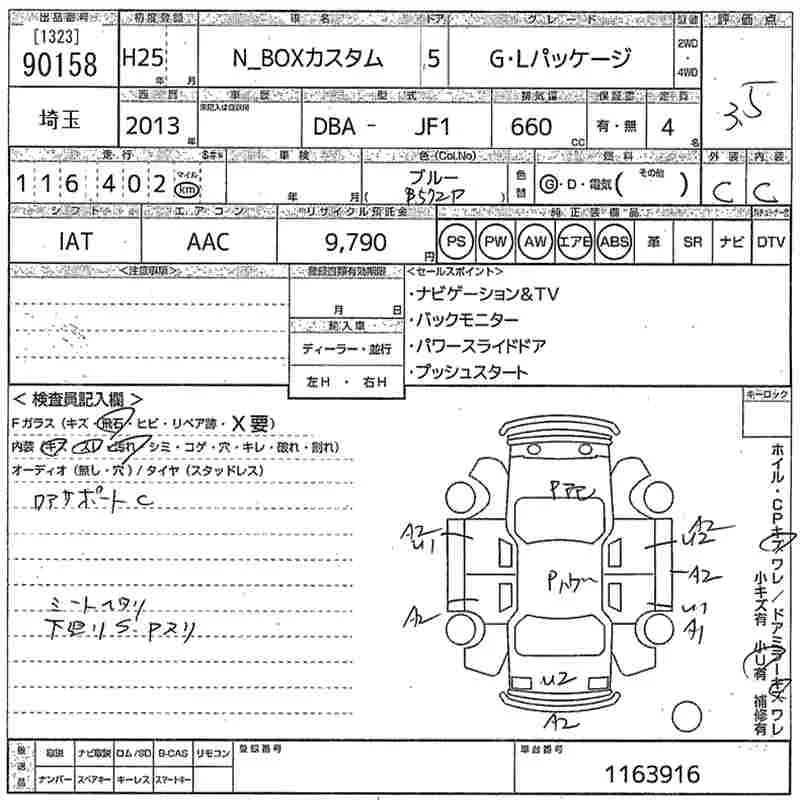 出品番号 初度登録 車名 ドア グレード 駆動 評価点
[1323]
90158 H25 年 月 N_BOXカスタム 5 G・Lパッケージ 2WD・4WD 3.5
埼玉 西暦 車歴 型式 排気量 保証書 定員
2013年 DBA - JF1 660cc 有・無 4名
走行 車検 色(Col.No) 燃料 外装 内装
116402 マイル km 年 月 ブルー 色替 G・D・電気( その他 ) C C
( B572P )
シフト エアコン リサイクル預託金 純正装備品
IAT AAC 9,790円 PS PW AW エアB ABS 革 SR ナビ DTV
<注意事項> 登録書類有効期限 <セールスポイント>
月 日 ・ナビゲーション&TV
輸入車 ・バックモニター
ディーラー・並行 ・パワースライドドア
左H ・ 右H ・プッシュスタート
< 検査員記入欄 > キーロック
Fガラス(キズ・飛石・ヒビ・リペア跡・X要)
内装(キズ・スレ・汚れ・シミ・コゲ・穴・キレ・破れ・割れ)
オーディオ(無し・穴)/タイヤ(スタッドレス)
ロアサポートC
シートヘタリ
下廻りS・Pスリ
A2
U1
A2
A2
U2
A2
U1
A1
U2
A2
ホイル・CPキズワレ/ドアミラーキズワレ
小キズ有 小U有 補修有
後送品 取説 ナビ取説 ロム/SD B-CAS リモコン 登録番号 車台番号
ナンバー スペアキー キーレス スマートキー 1163916